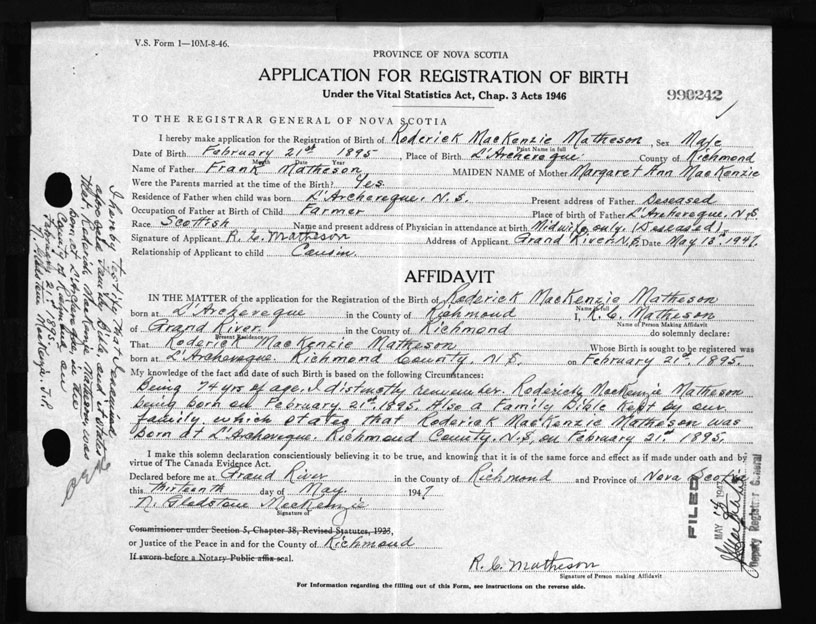 V.S. Form 1—10M-8-46.
PROVINCE OF NOVA SCOTIA
APPLICATION FOR REGISTRATION OF BIRTH
Under the Vital Statistics Act, Chap. 3 Acts 1946
990242
TO THE REGISTRAR GENERAL OF NOVA SCOTIA
I hereby make application for the Registration of Birth of Roderick MacKenzie Matheson, Sex Male
Print Name in full
Date of Birth February 21st 1895, Place of Birth L'Archeveque County of Richmond
Month Date Year
Name of Father Frank Matheson MAIDEN NAME of Mother Margaret Ann MacKenzie
Were the Parents married at the time of Birth? Yes
Residence of Father when child was born L'Archeveque, N.S. Present address of Father Deseased
Occupation of Father at Birth of Child Farmer Place of birth of Father L'Archeveque, N.S.
Race Scottish Name and present address of Physician in attendance at birth Midwife only. (Deseased)
Signature of Applicant R. C. Matheson Address of Applicant Grand River N.S. Date May 13th 1947
Relationship of Applicant to child Cousin.
AFFIDAVIT
IN THE MATTER of the application for the Registration of the Birth of Roderick MacKenzie Matheson
Name in full
born at L'Archeveque in the County of Richmond I, R. C. Matheson
Name of Person Making Affidavit
of Grand River in the County of Richmond do solemnly declare:
Present Residence
That Roderick MacKenzie Matheson Whose Birth is sought to be registered was
born at L'Archeveque. Richmond County. N.S. on February 21st. 1895.
My knowledge of the fact and date of such Birth is based on the following Circumstances:
Being 74 yrs of age, I distinctly remember Roderick MacKenzie Matheson
being born on February 21st. 1895. Also a Family Bible kept by our
family which states that Roderick MacKenzie Matheson was
born at L'Archeveque. Richmond County. N.S. on February 21st 1895.
I make this solemn declaration conscientiously believing it to be true, and knowing that it is of the same force and effect as if made under oath and by
virtue of The Canada Evidence Act.
Declared before me at Grand River in the County of Richmond and Province of Nova Scotia
this Thirteenth day of May 1947
N. Gladstone MacKenzie
Signature of
Commissioner under Section 5, Chapter 38, Revised Statutes, 1923,
or Justice of the Peace in and for the County of Richmond
If sworn before a Notary Public affix seal.
R. C. Matheson
Signature of Person making Affidavit
For Information regarding the filling out of this Form, see instructions on the reverse side.
I hereby certify that I examined
above family Bible and it states
that Roderick MacKenzie Matheson was
born at L'Archeveque, in the
County of Richmond on
February 21st 1895.
N. Gladstone MacKenzie J.P.
FILED
MAY 1947
Deputy Registrar General